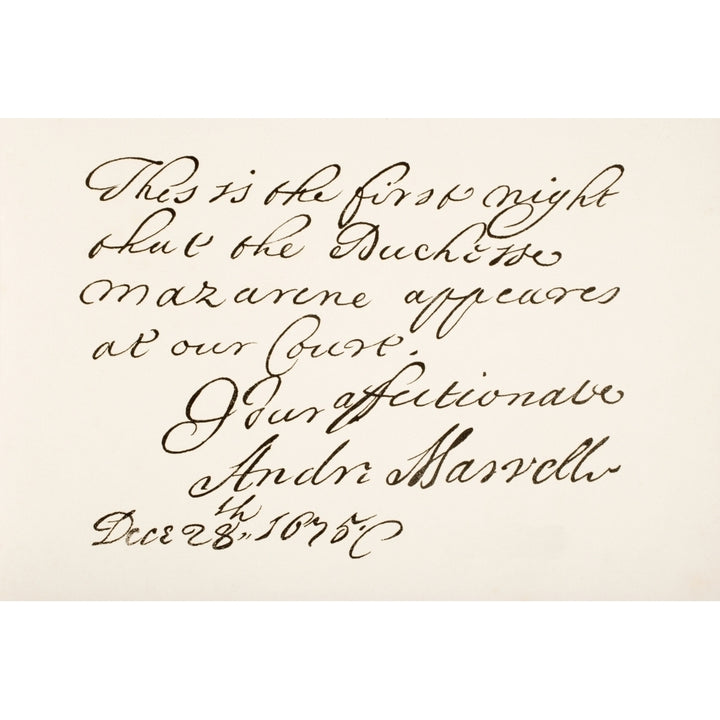 This is the first night
that the Duchesse
Mazarine appeares
at our Court.
Your affectionate
Andr: Marvell
Dece 28th 1675.